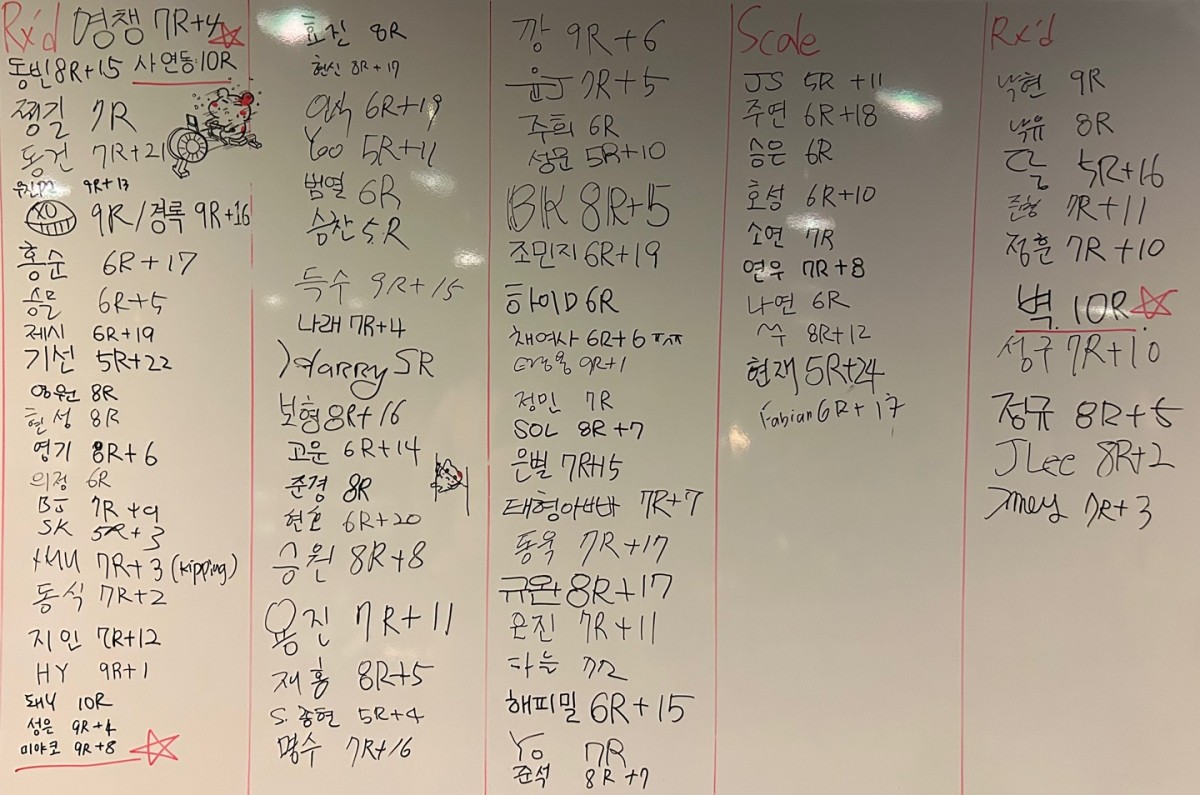 Rx'd 명챙 7R+4
동빈 8R+15 사연동 10R
쩡길 7R
동건 7R+21
9R+13
XO 9R/경록 9R+16
홍순 6R+17
승믈 6R+5
제시 6R+19
기선 5R+22
영원 8R
현성 8R
영기 8R+6
의정 6R
7R+9
SK 5R+3
7R+3 (kipping)
동식 7R+2
지인 7R+12
HY 9R+1
돼니 10R
성은 9R+4
미야코 9R+8
효진 8R
현신 8R+17
6R+19
Yoo 5R+11
범열 6R
승찬 5R
득수 9R+15
나래 7R+4
Harry 5R
보형 8R+16
고운 6R+14
준경 8R
현호 6R+20
승원 8R+8
용진 7R+11
재홍 8R+5
S.종현 5R+4
명수 7R+16
깡 9R+6
윤J 7R+5
주희 6R
성운 5R+10
BK 8R+5
조민지 6R+19
하이D 6R
채여사 6R+6 ㅠㅠ
9R+1
정민 7R
SOL 8R+7
은별 7R+15
태형아빠 7R+7
동욱 7R+17
규완 8R+17
은진 7R+11
다늘
해피밀 6R+15
Yo 7R
준석 8R+7
Scale
JS 5R+11
주연 6R+18
승은 6R
호성 6R+10
소연 7R
연우 7R+8
나연 6R
8R+12
현재 5R+24
Fabian 6R+17
Rx'd
낙현 9R
낙유 8R
달 5R+16
준형 7R+11
정훈 7R+10
벽 10R
성구 7R+10
정규 8R+5
JLee 8R+2
7R+3